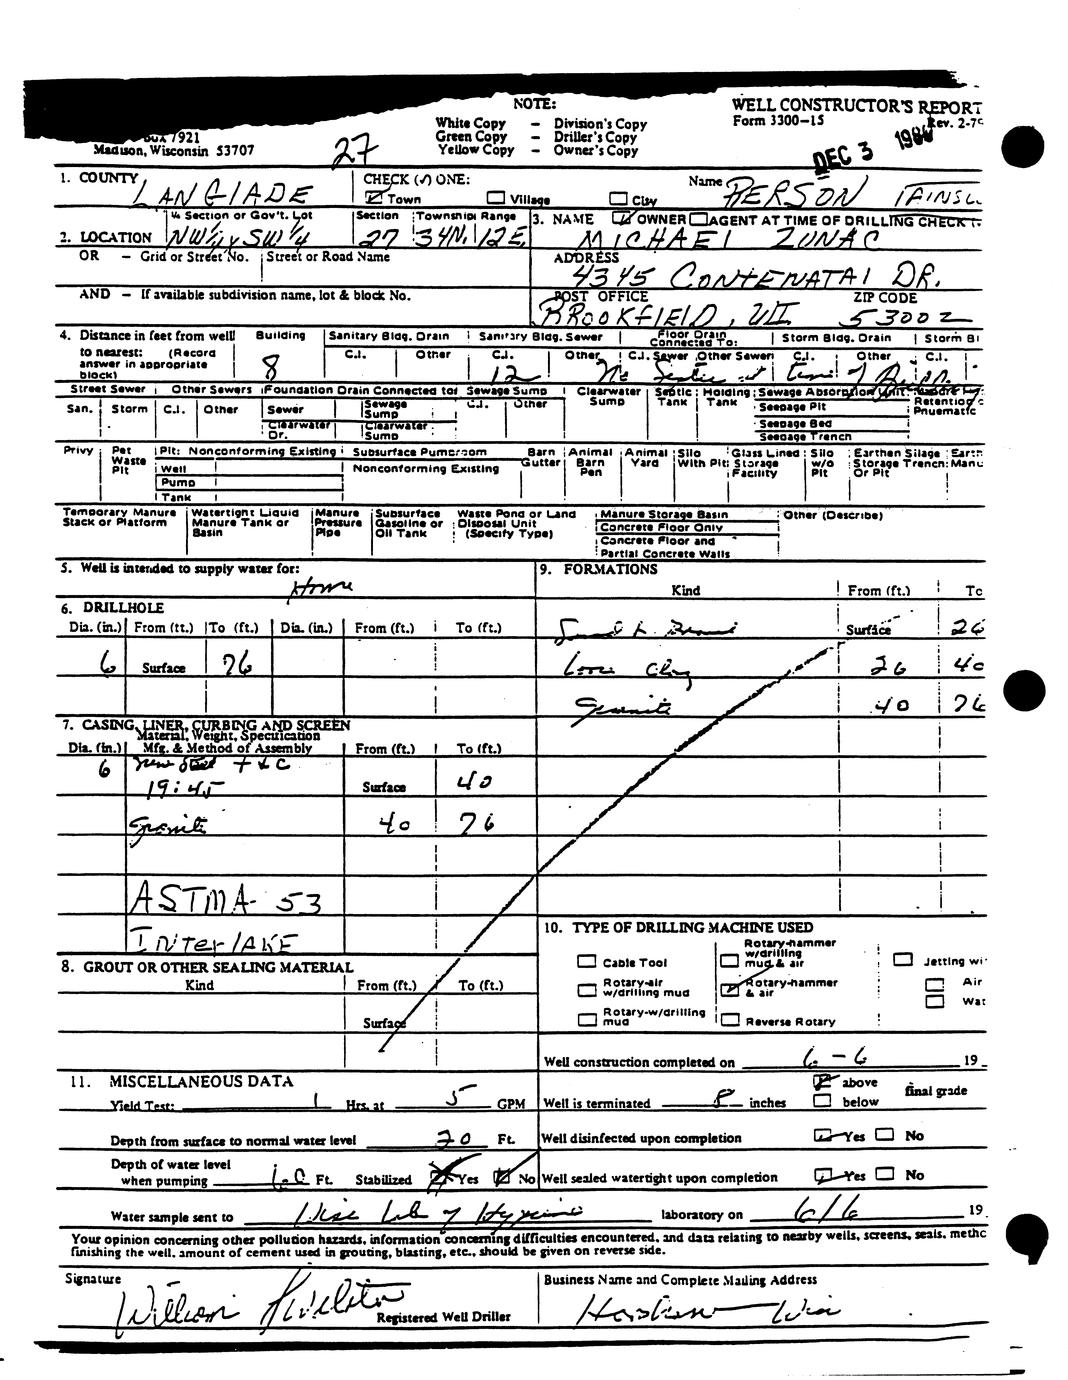 NOTE:
WELL CONSTRUCTOR'S REPORT
Form 3300-15 Rev. 2-79
White Copy – Division's Copy
Green Copy – Driller's Copy
Yellow Copy – Owner's Copy
Box 7921
Madison, Wisconsin 53707
27
DEC 3
1. COUNTY LANGLADE
CHECK (✓) ONE: Town Village City
Name PIERSON
2. LOCATION
¼ Section or Gov't. Lot Section Township Range
NW¼ SW¼ 27 34N. 12E.
3. NAME OWNER AGENT AT TIME OF DRILLING CHECK
MICHAEL ZUNAC
OR – Grid or Street No. Street or Road Name
ADDRESS
4345 CONTENATAL DR.
AND – If available subdivision name, lot & block No.
POST OFFICE ZIP CODE
BROOKFIELD, WI 53002
4. Distance in feet from well to nearest: (Record answer in appropriate block)
Building Sanitary Bldg. Drain Sanitary Bldg. Sewer Floor Drain Connected To: Storm Bldg. Drain Storm Bl
C.I. Other C.I. Other C.I. Sewer Other Sewer C.I. Other C.I.
8 12 No Septic at time of
Street Sewer Other Sewers Foundation Drain Connected to: Sewage Sump Clearwater Sump Septic Tank Holding Tank Sewage Absorption Unit
San. Storm C.I. Other Sewer Sewage Sump C.I. Other Seepage Pit
Clearwater Dr. Clearwater Sump Seepage Bed
Seepage Trench
Privy Pet Waste Pit Pit: Nonconforming Existing Subsurface Pumproom Barn Gutter Animal Barn Pen Animal Yard Silo With Pit Glass Lined Storage Facility Silo w/o Pit Earthen Silage Storage Trench Or Pit
Well Nonconforming Existing
Pump
Tank
Temporary Manure Stack or Platform Watertight Liquid Manure Tank or Basin Manure Pressure Pipe Subsurface Gasoline or Oil Tank Waste Pond or Land Disposal Unit (Specify Type) Manure Storage Basin Other (Describe)
Concrete Floor Only
Concrete Floor and Partial Concrete Walls
5. Well is intended to supply water for:
Home
6. DRILLHOLE
Dia. (in.) From (ft.) To (ft.) Dia. (in.) From (ft.) To (ft.)
6 Surface 76
7. CASING, LINER, CURBING AND SCREEN
Material, Weight, Specification
Dia. (in.) Mfg. & Method of Assembly From (ft.) To (ft.)
6 New Steel T & C
19:45 Surface 40
Granite 40 76
ASTMA- 53
InterLAKE
8. GROUT OR OTHER SEALING MATERIAL
Kind From (ft.) To (ft.)
Surface
9. FORMATIONS
Kind From (ft.) To
Surface 26
Clay 26 40
Granite 40 76
10. TYPE OF DRILLING MACHINE USED
Cable Tool Rotary-hammer w/drilling mud & air Jetting wi
Rotary-air w/drilling mud Rotary-hammer & air Air
Rotary-w/drilling mud Reverse Rotary Wat
Well construction completed on 6-6 19
11. MISCELLANEOUS DATA
Yield Test: 1 Hrs. at 5 GPM
Well is terminated 8 inches above below final grade
Depth from surface to normal water level 20 Ft.
Well disinfected upon completion Yes No
Depth of water level when pumping 60 Ft. Stabilized Yes No
Well sealed watertight upon completion Yes No
Water sample sent to Wisc Lab of Hygiene laboratory on 6/6 19
Your opinion concerning other pollution hazards, information concerning difficulties encountered, and data relating to nearby wells, screens, seals, metho
finishing the well, amount of cement used in grouting, blasting, etc., should be given on reverse side.
Signature
William
Registered Well Driller
Business Name and Complete Mailing Address
Wis